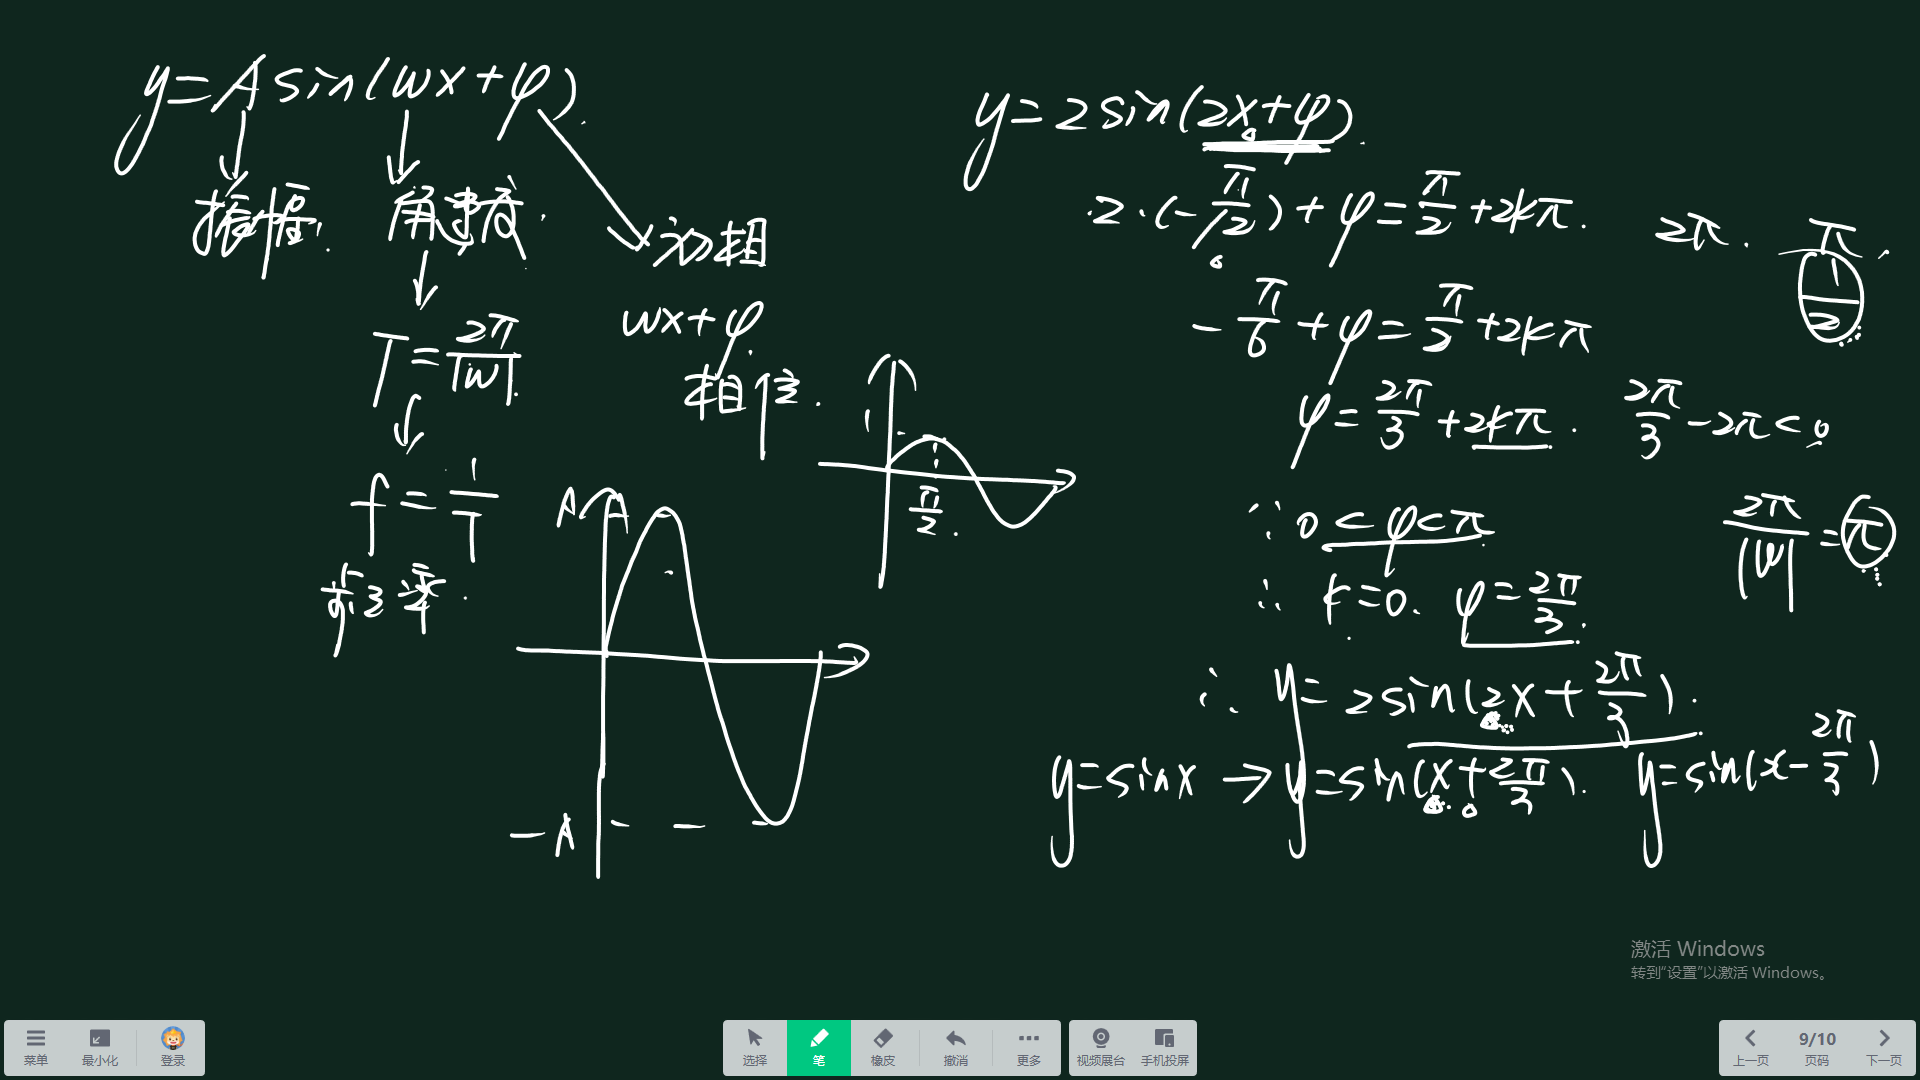 y=Asin(wx+φ).
振幅. 角速度. 初相
T=2π/|w|.
wx+φ
相位.
f=1/T
频率.
1
π/2.
A
-A
y=2sin(2x+φ).
2·(-π/12)+φ=π/2+2kπ.
2π. π.
1/2
-π/6+φ=π/2+2kπ
φ=2π/3+2kπ. 2π/3-2π<0
∵0<φ<π
2π/|w|=π
∴k=0. φ=2π/3.
∴y=2sin(2x+2π/3).
y=sinx→y=sin(x+2π/3). y=sin(x-2π/3)
激活 Windows
转到“设置”以激活 Windows。
菜单 最小化 登录 选择 笔 橡皮 撤消 更多 视频展台 手机投屏 上一页 9/10 页码 下一页